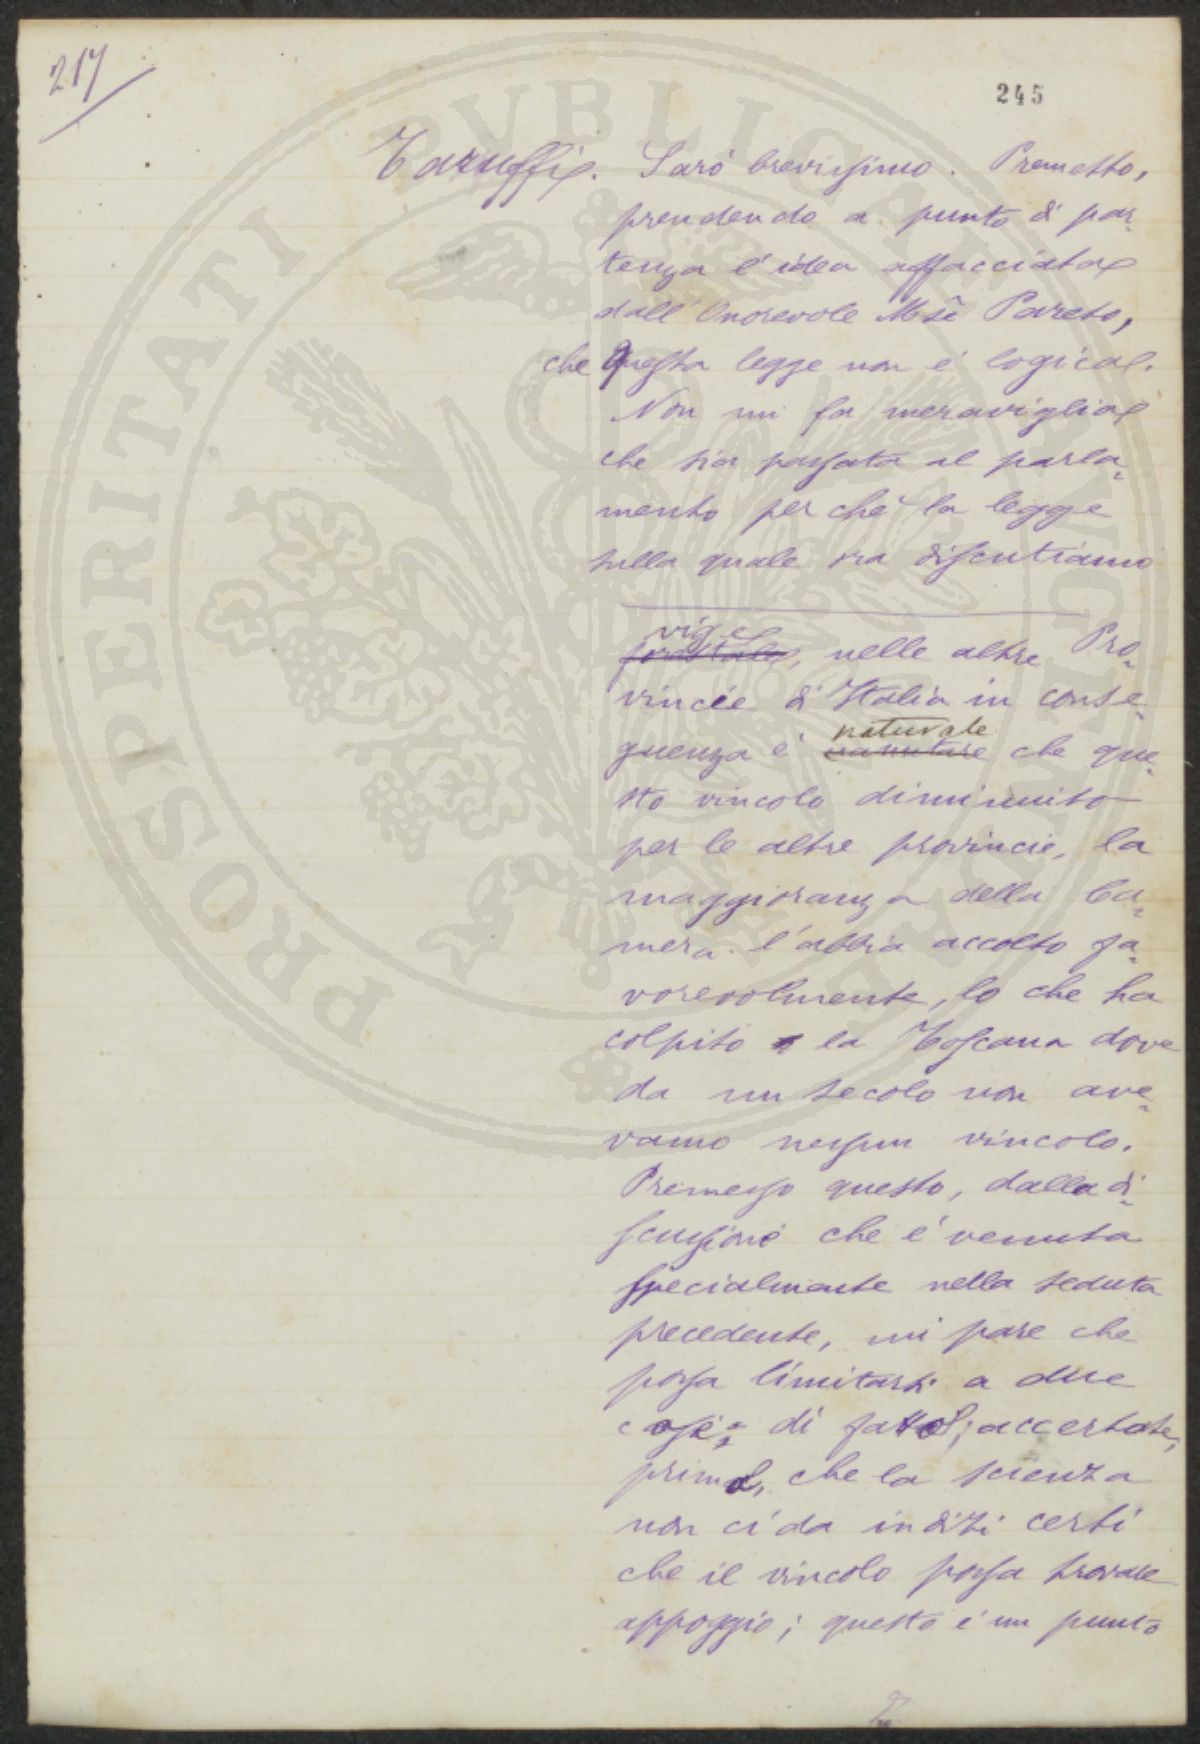 217
245
Taruffi. Sarò brevissimo. Premetto,
prendendo a punto di par-
tenza l'idea affacciata
dall'Onorevole Mse Pareto,
che questa legge non è logica.
Non mi fa meraviglia
che sia passata al parla-
mento perchè la legge
sulla quale ora discutiamo
vige
forestale, nelle altre Pro-
vincie d'Italia in conse-
naturale
guenza è che que-
sto vincolo diminuito
per le altre provincie, la
maggioranza della Ca-
mera l'abbia accolto fa-
vorevolmente, lo che ha
colpito la Toscana dove
da un secolo non ave-
vamo nessun vincolo.
Premesso questo, dalla di-
scussione che è venuta
specialmente nella seduta
precedente, mi pare che
possa limitarsi a due
cose: di fatto, accertate,
prima, che la scienza
non ci da indizi certi
che il vincolo possa trovare
appoggio; questo è un punto
PROSPERITATI PVBLICAE AVGENDAE